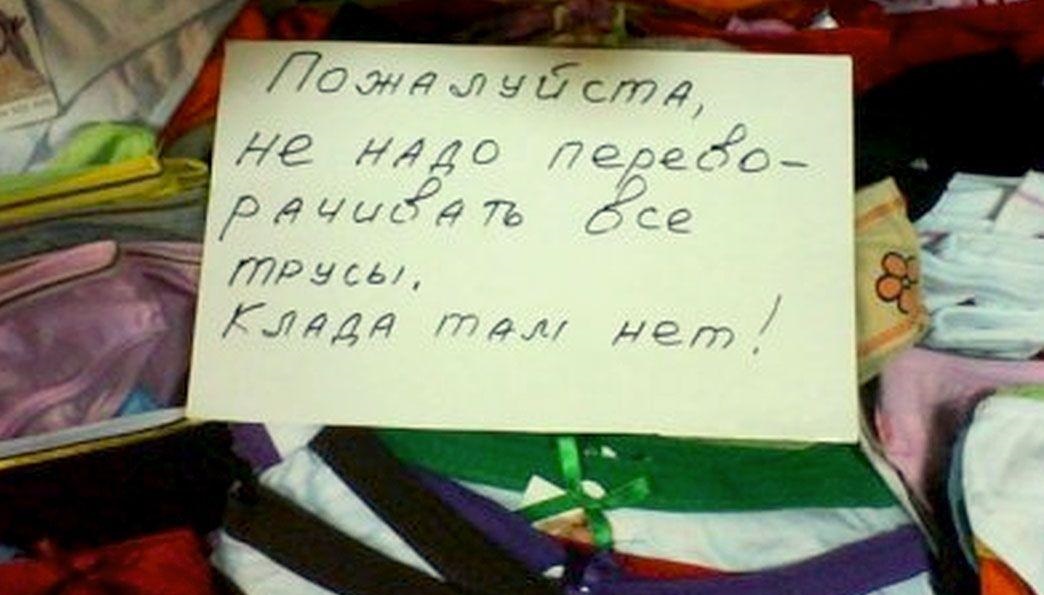 Пожалуйста,
не надо перево-
рачивать все
трусы.
Клада там нет!